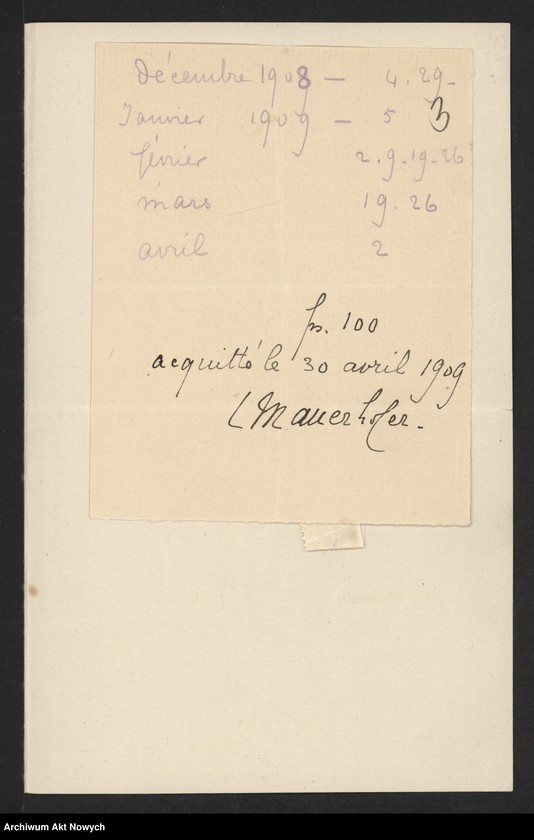 décembre 1908 — 4. 29-
Janvier 1909 — 5 3
février 2. 9. 19. 26
mars 19. 26
avril 2
frs. 100
acquitté le 30 avril 1909
LMauerhofer.
Archiwum Akt Nowych